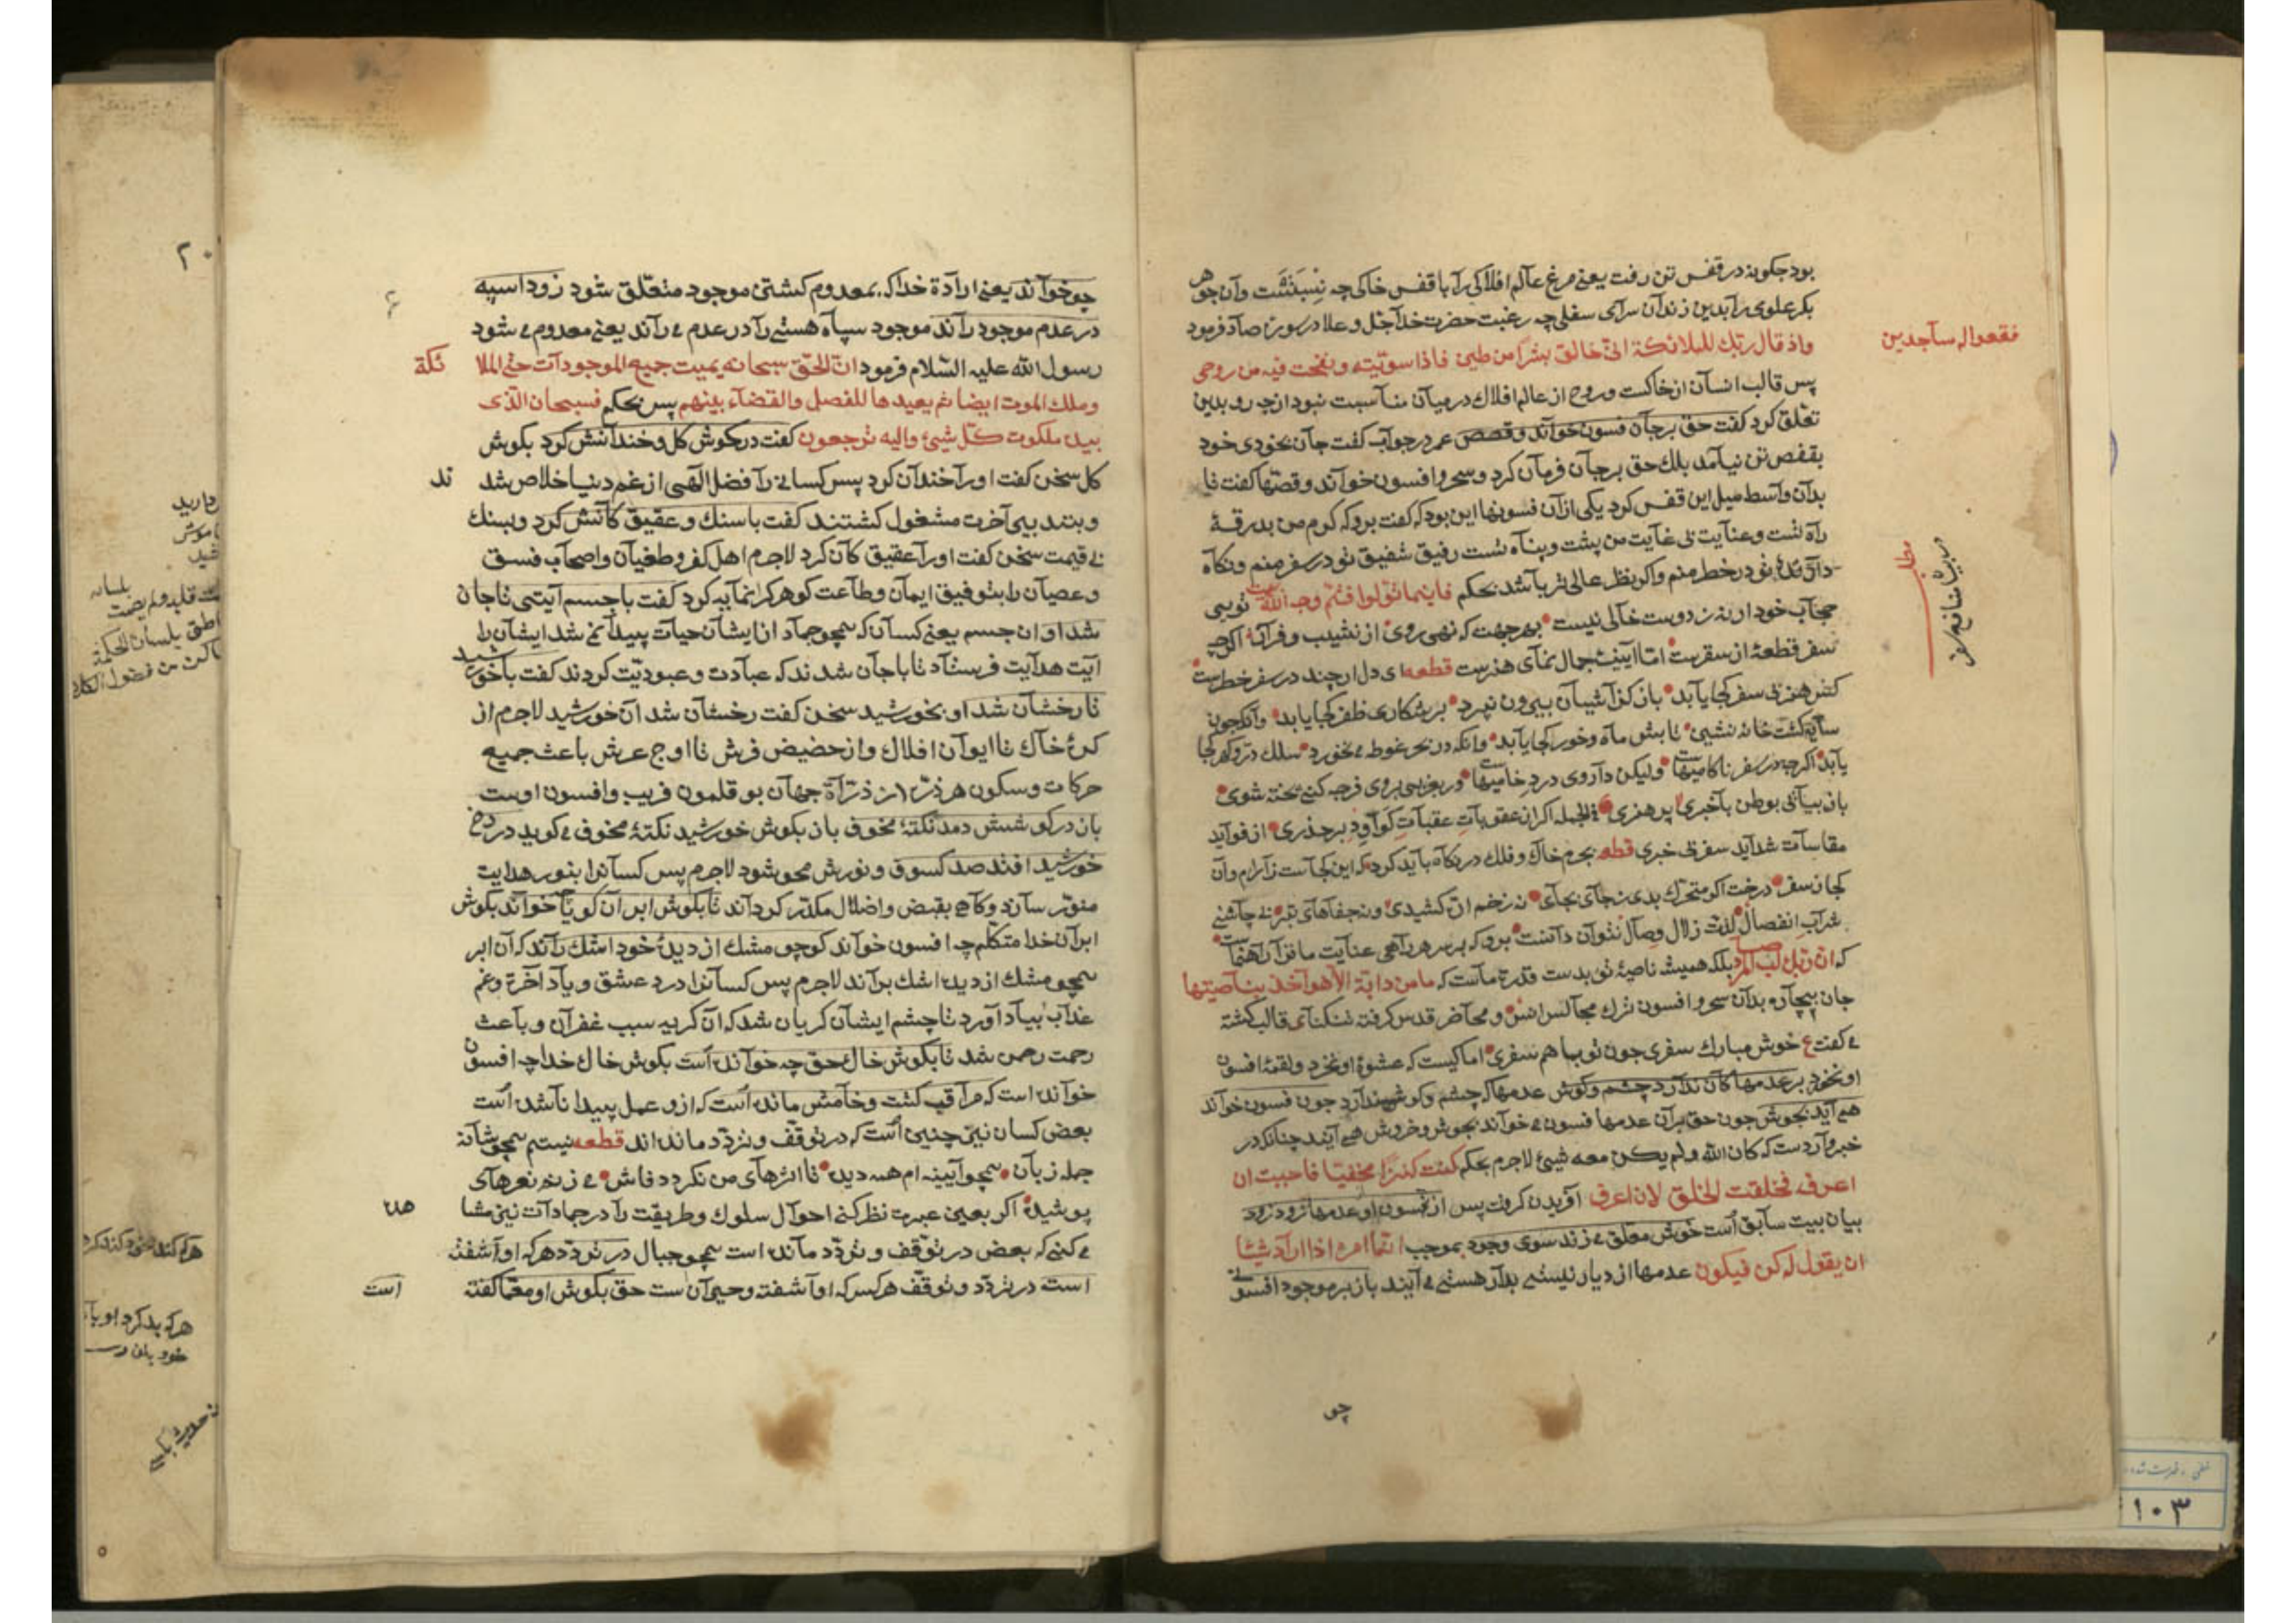 بود چکونه در قفس تن رفت یعنی مرغ عالم افلاکی را با قفس خاکی چه نسبتست وآن جوهر
بکر علوی را بدین زندان سرای سفلی چه رغبت حضرت خدا جل وعلا در سوره صاد فرمود
واذ قال ربك للملائكة انی خالق بشرا من طین فاذا سویته ونفخت فیه من روحی
فقعوا له ساجدین
پس قالب انسان از خاکست وروح از عالم افلاك در میان مناسبت نبود از چه رو بدین
تعلق کرد کفت حق بر جان فسون خواند وقصص عمر در جواب کفت جان بخودی خود
بقفص تن نیامد بلك حق بر جان فرمان کرد وسحر وافسون خواند وقصتها کفت تا
بدان واسط میل این قفس کرد یکی از آن فسونها این بود که کفت برو که کرم من بدرقهٔ
راه تست وعنایت بی غایت من پشت وپناه تست رفیق شفیق تو در سفر منم ونکاه
دارندهٔ تو در خطر منم واکر نظر عالی تر باشد بحکم فاینما تولوا فثم وجه الله تو بی
حجاب خود از نزد دوست خالی نیست بهر جهت که نهی روی از نشیب وفراز اکرچه
سفر قطعهٔ از سقرست اما آیینهٔ جمال نمای هنرست قطعه ای دل ارچند در سفر خطرست
کس هنر بی سفر کجا یابد باز کز آشیان بیرون نپرد بر شکاری ظفر کجا یابد وآنکه چون
سایه کشت خانه نشین تابش ماه وخور کجا یابد وانکه در بحر غوطه می نخورد سلك در وکهر کجا
یابد اکرچه در سفر ناکامیهاست ولیکن داروی درد خامیهاست در غریبی بروی فرجه کنی پخته شوی
باز بیایی بوطن باخبری پر هنری فی الجمله اکر از عقوبات عقبات کوآوِد بر حذری از فواید
مقاسات شداید سفر بی خبری قطعه بجرم خاك وفلك در نکاه باید کرد که این کجاست ز آرام وآن
کجا ز سفر درخت اکر متحرك بدی ز جای بجای نه زخم اره کشیدی ونه جفاهای تبر بی چاشنی
شراب انفصال لذت زلال وصال نتوان دانست برو که بر سر هر راهی عنایت ما ترا راهنماست
که ان ربك لبالمرصاد بلکه همیشه ناصیهٔ تو بدست قدرت ماست که ما من دابة الا هو آخذ بناصیتها
جان بیچاره بدان سحر وافسون ترك مجالس انس ومحاضر قدس کرفته تنکنای قالب کشته
می کفت ع خوش مبارك سفری چون تو بما هم سفری اما کیست که عشوهٔ او نخرد ولقمهٔ افسون
او نخورد بر عدمها کان ندارد چشم وکوش عدمها که چشم وکوش ندارد چون فسون خواند
همی آید بجوش چون حق بر آن عدمها فسون می خواند بجوش وخروش همی آیند چنانکه در
خبر واردست که کان الله ولم یکن معه شیئ لاجرم بحکم کنت کنزا مخفیا فاحببت ان
اعرف فخلقت الخلق لان اعرف آفریدن کرفت پس از فسون او عدمها زود زود
بیان بیت سابق است خوش معلق می زند سوی وجود بموجب انما امره اذا اراد شیئا
ان یقول له کن فیکون عدمها از دیار نیستی بدار هستی می آیند باز بر موجود افسونی
چو
چو خواند یعنی ارادة خدا که بمعدوم کشتن موجود متعلق شود زود اسپه
در عدم موجود راند موجود سپاه هستی را در عدم می راند یعنی معدوم می شود
رسول الله علیه السلام فرمود ان الحق سبحانه یمیت جمیع الموجودات حتی الملا ئکة
وملك الموت ایضا ثم یعیدها للفصل والقضاء بینهم پس بحکم فسبحان الذی
بیده ملکوت کل شیئ والیه ترجعون کفت در کوش کل وخندانش کرد بکوش
کل سخن کفت اورا خندان کرد پس کسانی را فضل الهی از غم دنیا خلاص شد ند
وبتدبیر آخرت مشغول کشتند کفت با سنك وعقیق کانش کرد وبسنك
بی قیمت سخن کفت اورا عقیق کان کرد لاجرم اهل کفر وطغیان واصحاب فسق
وعصیان را بتوفیق ایمان وطاعت کوهر کرانمایه کرد کفت با جسم آیتی تا جان
شد او ان جسم یعنی کسان که همچو جماد از ایشان حیات پیدا نمی شد ایشان را
آیت هدایت فرستاد تا با جان شدند که عبادت وعبودیت کردند کفت با خورشید
تا رخشان شد او بخورشید سخن کفت رخشان شد آن خورشید لاجرم از
کرهٔ خاك تا ایوان افلاك واز حضیض فرش تا اوج عرش باعث جمیع
حرکات وسکون هر ذره از ذرات جهان بوقلمون فریب وافسون اوست
باز در کوشش دمد نکتهٔ مخوف باز بکوش خورشید نکتهٔ مخوف می کوید در رخ
خورشید افتد صد کسوف ونورش محو شود لاجرم پس کسانرا بنور هدایت
منور سازد وکاهی بقبض واضلال مکدر کرداند تا بکوش ابر آن کویا چه خواند بکوش
ابر آن خدا متکلم چه افسون خواند کو چو مشك از دیدهٔ خود اشك راند که آن ابر
همچو مشك از دیده اشك براند لاجرم پس کسانرا درد عشق ویاد آخرة وغم
عذاب بیاد آورد تا چشم ایشان کریان شد که آن کریه سبب غفران وباعث
رحمت رحمن شد تا بکوش خاك حق چه خوانده است بکوش خاك خدا چه افسون
خوانده است که مراقب کشت وخامش مانده است که ازو عمل پیدا نا شده است
بعض کسان نیز چنین است که در توقف وتردد مانده اند قطعه نیستم همچو شانه
جمله زبان همچو آیینه ام همه دیده تا اثرهای من نکردد فاش می زنم نعرهای
پوشیده اکر بعین عبرت نظر کنی احوال سلوك وطریقت را در جمادات نیز مشا هده
می کنی که بعض در توقف وتردد مانده است همچو جبال در تردد هر که او آشفته
است در تردد وتوقف هر کس که او آشفته وحیران ست حق بکوش او معما کفته است
مطلب
در بیان منافع سفر
۲۰
۱۰۳